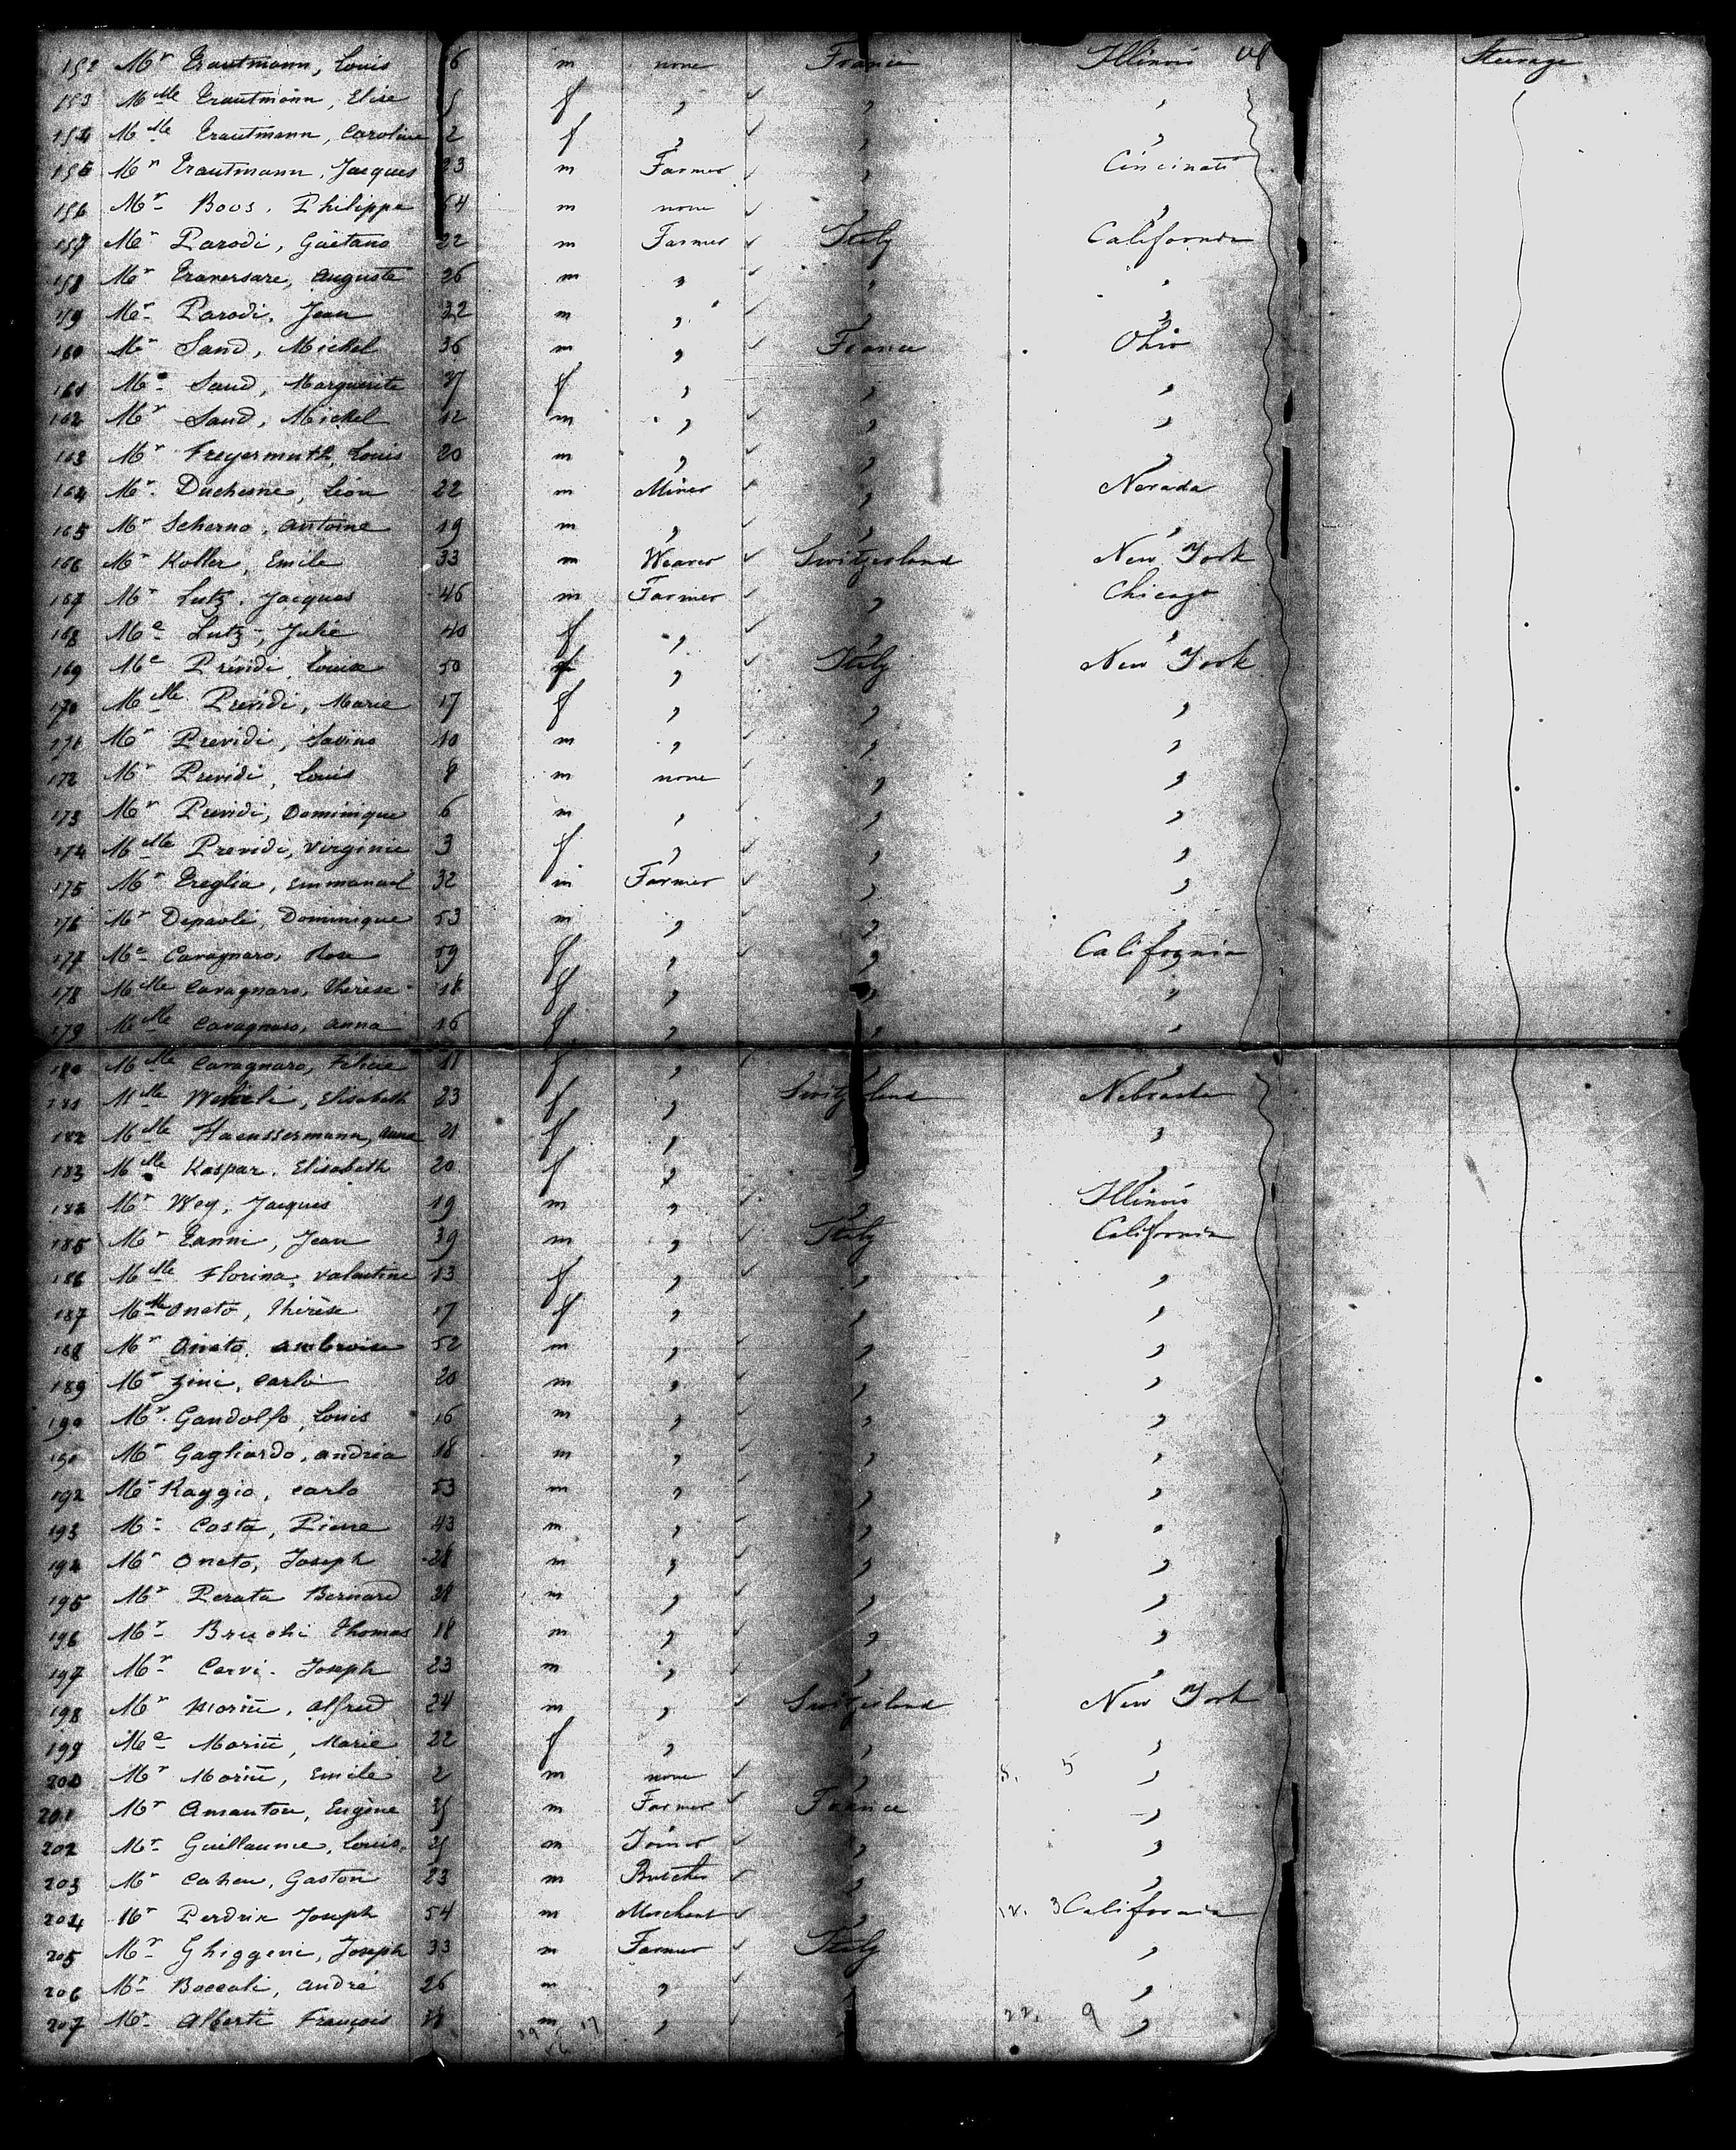 152 Mr Trautmann, Louis 6 m none France Illinois Steerage
153 Mlle Trautmann, Elise 5 f " " "
154 Mlle Trautmann, Caroline 2 f " " "
155 Mr Trautmann, Jacques 23 m Farmer " Cincinati
156 Mr Boos, Philippe 54 m none " "
157 Mr Parodi, Gaetano 22 m Farmer Italy California
158 Mr Traversare, Auguste 26 m " " "
159 Mr Parodi, Jean 32 m " " "
160 Mr Sand, Michel 36 m " France Ohio
161 Me Sand, Marguerite 37 f " " "
162 Mr Sand, Michel 12 m " " "
163 Mr Freyermuth, Louis 20 m " " "
164 Mr Duchesne, Léon 22 m Miner " Nevada
165 Mr Scherno, Antoine 19 m " " "
166 Mr Koller, Emile 33 m Weaver Switzerland New York
167 Mr Lutz, Jacques 46 m Farmer " Chicago
168 Me Lutz, Julie 40 f " " "
169 Me Prévidi, Louise 50 f " Italy New York
170 Mlle Prévidi, Marie 17 f " " "
171 Mr Prévidi, Savino 10 m " " "
172 Mr Prévidi, Louis 8 m none " "
173 Mr Prévidi, Dominique 6 m " " "
174 Mlle Prévidi, Virginie 3 f " " "
175 Mr Treglia, Emmanuel 32 m Farmer " "
176 Mr Depaoli, Dominique 53 m " " "
177 Me Cavagnaro, Rose 59 f " " California
178 Mlle Cavagnaro, Thérèse 18 f " " "
179 Mlle Cavagnaro, Anna 16 f " " "
180 Mlle Cavagnaro, Félicie 11 f " " "
181 Mlle Elisabeth 23 f " Switzerland Nebraska
182 Mlle Haenssermann, Anna 21 f " " "
183 Mlle Kaspar, Elisabeth 20 f " " "
184 Mr Woy, Jacques 19 m " " Illinois
185 Mr Zanni, Jean 39 m " Italy California
186 Mlle Florina, Valentine 13 f " " "
187 Mlle Oneto, Thérèse 17 f " " "
188 Mr Oneto, Ambroise 52 m " " "
189 Mr Zini, Carlo 20 m " " "
190 Mr Gandolfo, Louis 16 m " " "
191 Mr Gagliardo, Andria 18 m " " "
192 Mr Raggio, Carlo 53 m " " "
193 Mr Costa, Pierre 43 m " " "
194 Mr Oneto, Joseph 28 m " " "
195 Mr Perata Bernard 38 m " " "
196 Mr Bruchi Thomas 18 m " " "
197 Mr Corvi, Joseph 23 m " " "
198 Mr Morin, Alfred 24 m " Switzerland New York
199 Me Morin, Marie 22 f " " "
200 Mr Morin, Emile 2 m none " "
201 Mr Amanton, Eugène m Farmer France "
202 Mr Guillaume, Louis m Joiner " "
203 Mr Cahen, Gaston 23 m Butcher " "
204 Mr Perdrix Joseph 54 m Merchant " California
205 Mr Ghiggeni, Joseph 33 m Farmer Italy "
206 Mr Boccoli, André 26 m " " "
207 Mr Alberti François m " " "